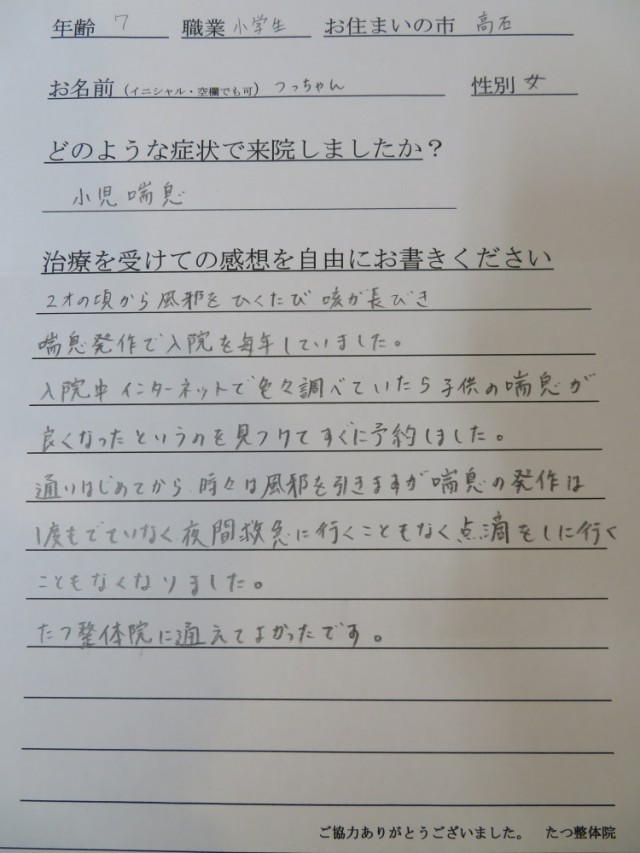 年齢 7 職業 小学生 お住まいの市 高石
お名前（イニシャル・空欄でも可） つっちゃん 性別 女
どのような症状で来院しましたか？
小児喘息
治療を受けての感想を自由にお書きください
2才の頃から風邪をひくたび咳が長びき
喘息発作で入院を毎年していました。
入院中インターネットで色々調べていたら子供の喘息が
良くなったというのを見つけてすぐに予約しました。
通いはじめてから、時々は風邪を引きますが喘息の発作は
1度もでていなく夜間救急に行くこともなく点滴をしに行く
こともなくなりました。
たつ整体院に通えてよかったです。
ご協力ありがとうございました。 たつ整体院